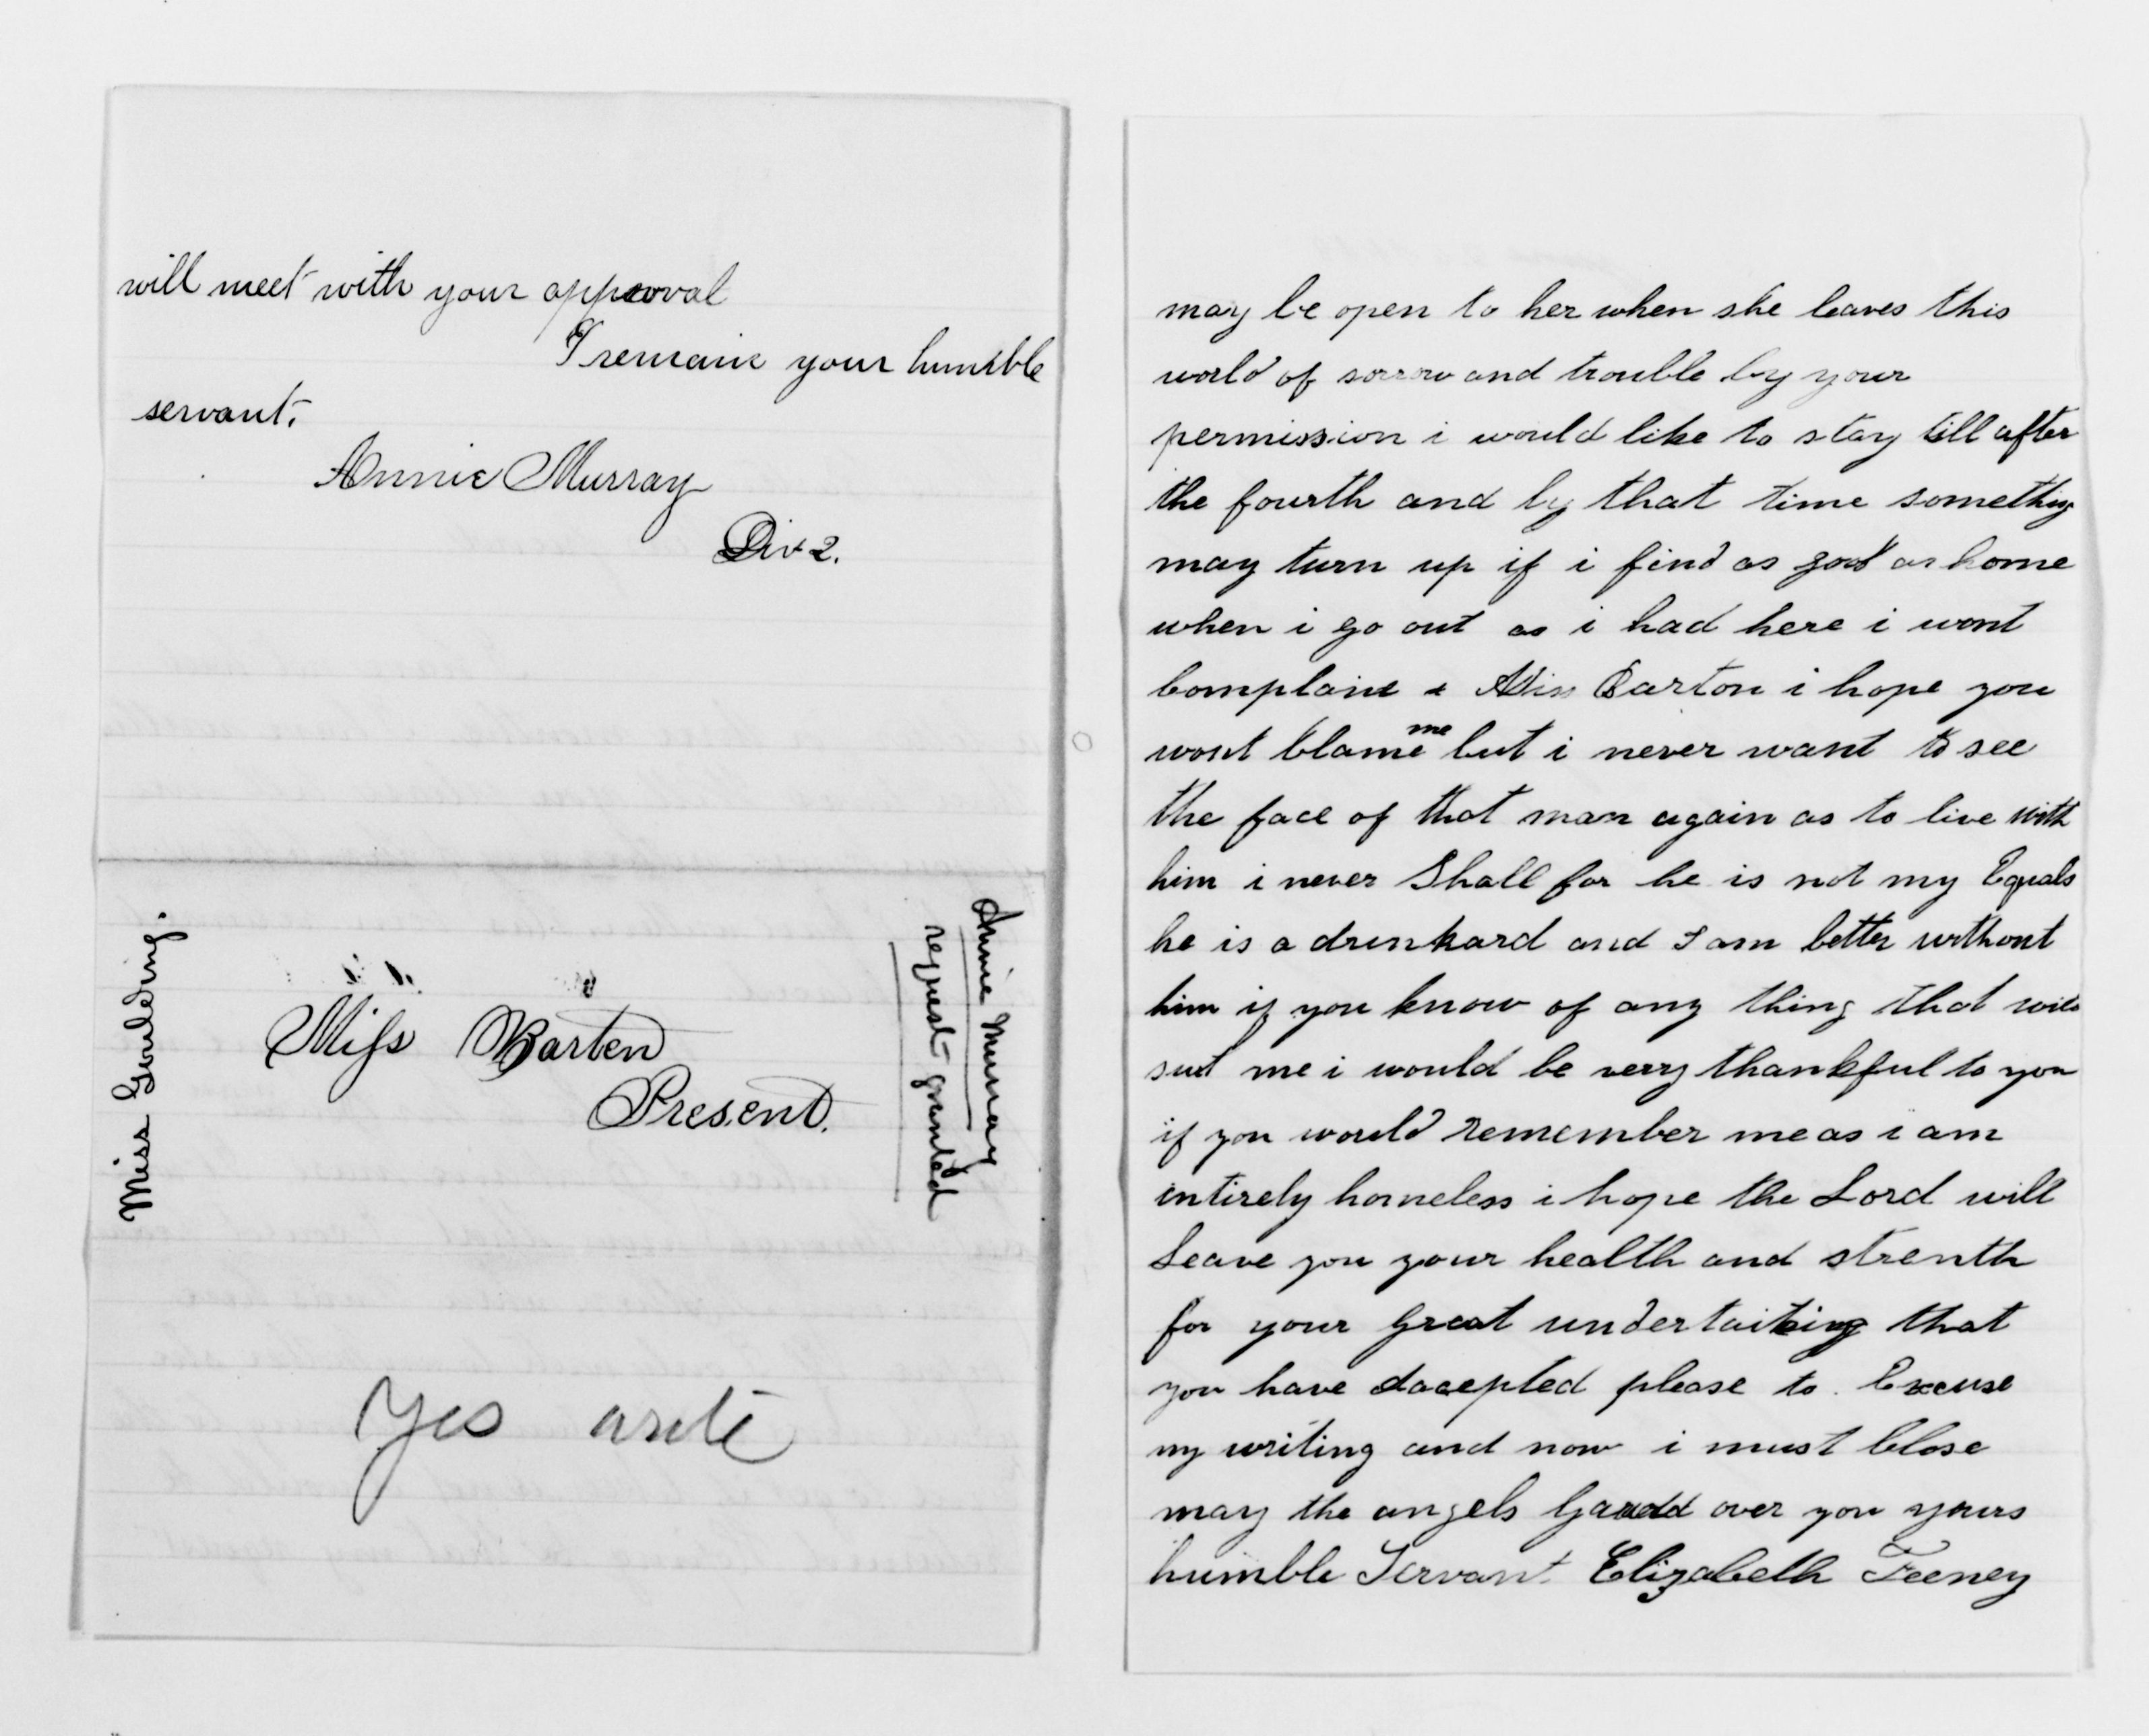 will meet with your approval
I remain your humble
servant.
Annie Murray
Div 2.
Miss Goulding.
Miss Barten
Present.
Annie Murray
request granted
Yes write
may be open to her when she leaves this
world of sorrow and trouble by your
permission i would like to stay till after
the fourth and by that time somethig
may turn up if i find as good as home
when i go out as i had here i wont
Complain Miss Barton i hope you
wont blame me but i never want to see
the face of that man again as to live with
him i never Shall for he is not my Equals
he is a drunkard and I am better without
him if you know of any thing that will
suit me i would be verry thankful to you
if you would remember me as i am
intirely homeless i hope the Lord will
Leave you your health and strenth
for your great undertaiking that
you have accepted please to Excuse
my writing and now i must Close
may the angels Gaurd over you yours
humble Servant. Elizabeth Feeney